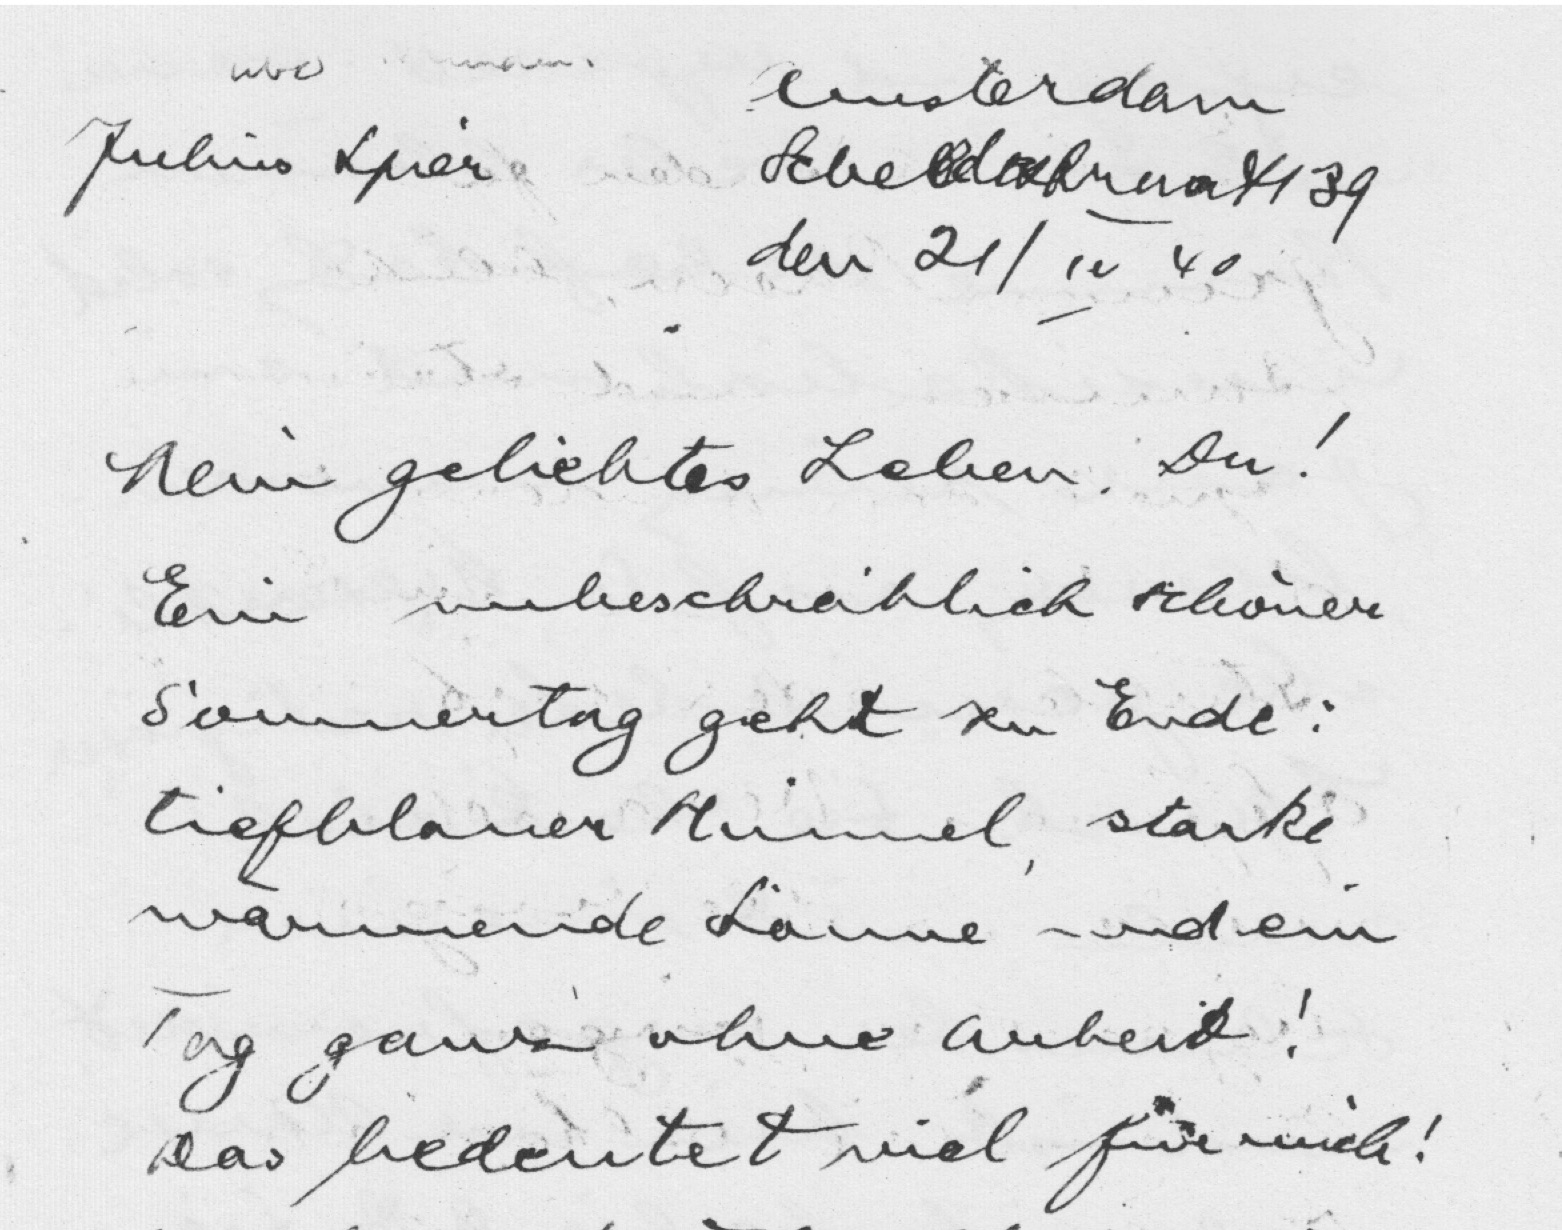 Julius Spier
Amsterdam
Scheldestraat 39
den 21/IV 40
Mein geliebtes Leben, Du!
Ein unbeschreiblich schöner
Sommertag geht zu Ende:
tiefblauer Himmel, starke
wärmende Sonne und ein
Tag ganz ohne Arbeit!
Das bedeutet viel für mich!